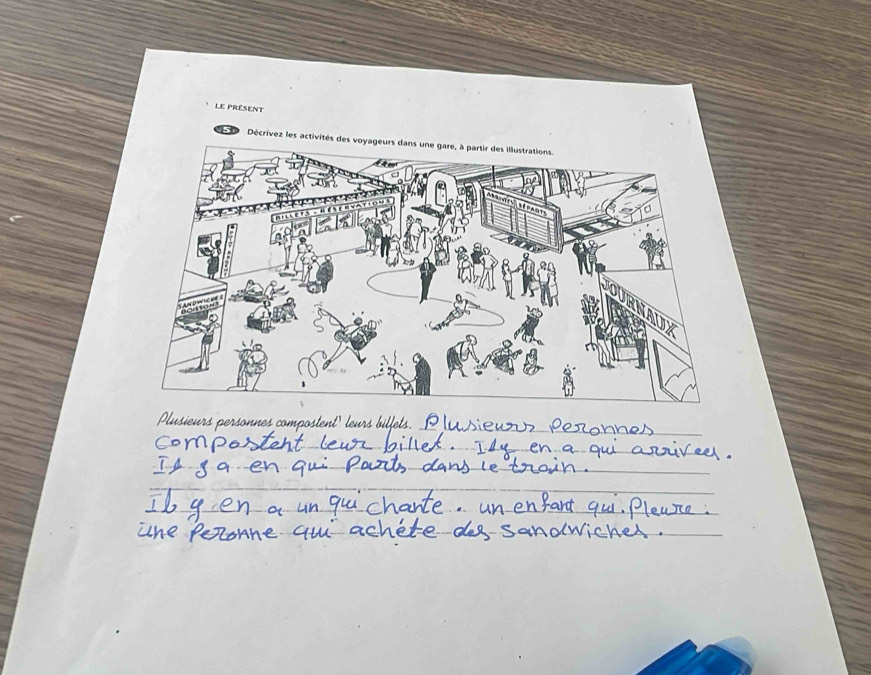 LE PRÉSENT
5 Décrivez les activités des voyageurs dans une gare, à partir des illustrations.
BILLETS - RÉSERVATIONS
ARRIVÉES DÉPARTS
SANDWICHES
BOISSONS
JOURNAUX
Plusieurs personnes compostent¹ leurs billets. Plusieurs Peronnes
compostent leur billet. Il y en a qui arrivees.
Il y a en qui Parts dans le train.
Il y en a un qui chante. un enfant qui Pleure.
une Peronne qui achéte des sandwiches.